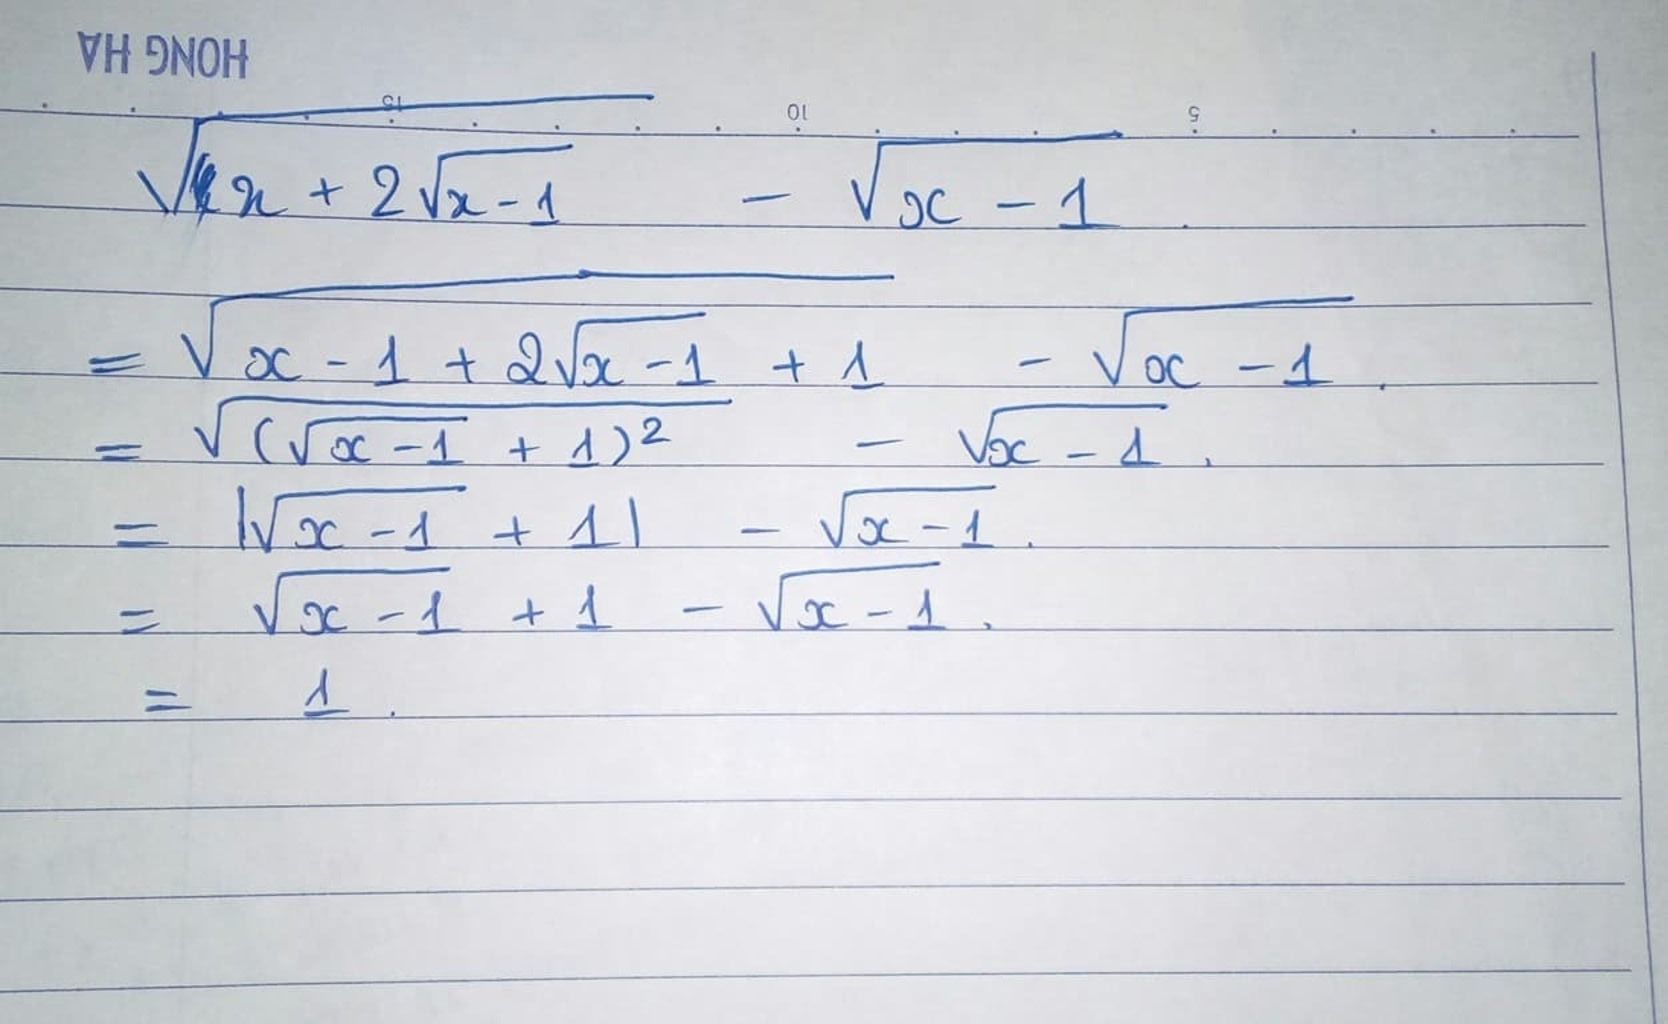 HONG HA
15 10 5
√(x + 2√(x - 1)) - √(x - 1).
= √(x - 1 + 2√(x - 1) + 1) - √(x - 1).
= √((√(x - 1) + 1)²) - √(x - 1).
= |√(x - 1) + 1| - √(x - 1).
= √(x - 1) + 1 - √(x - 1).
= 1.